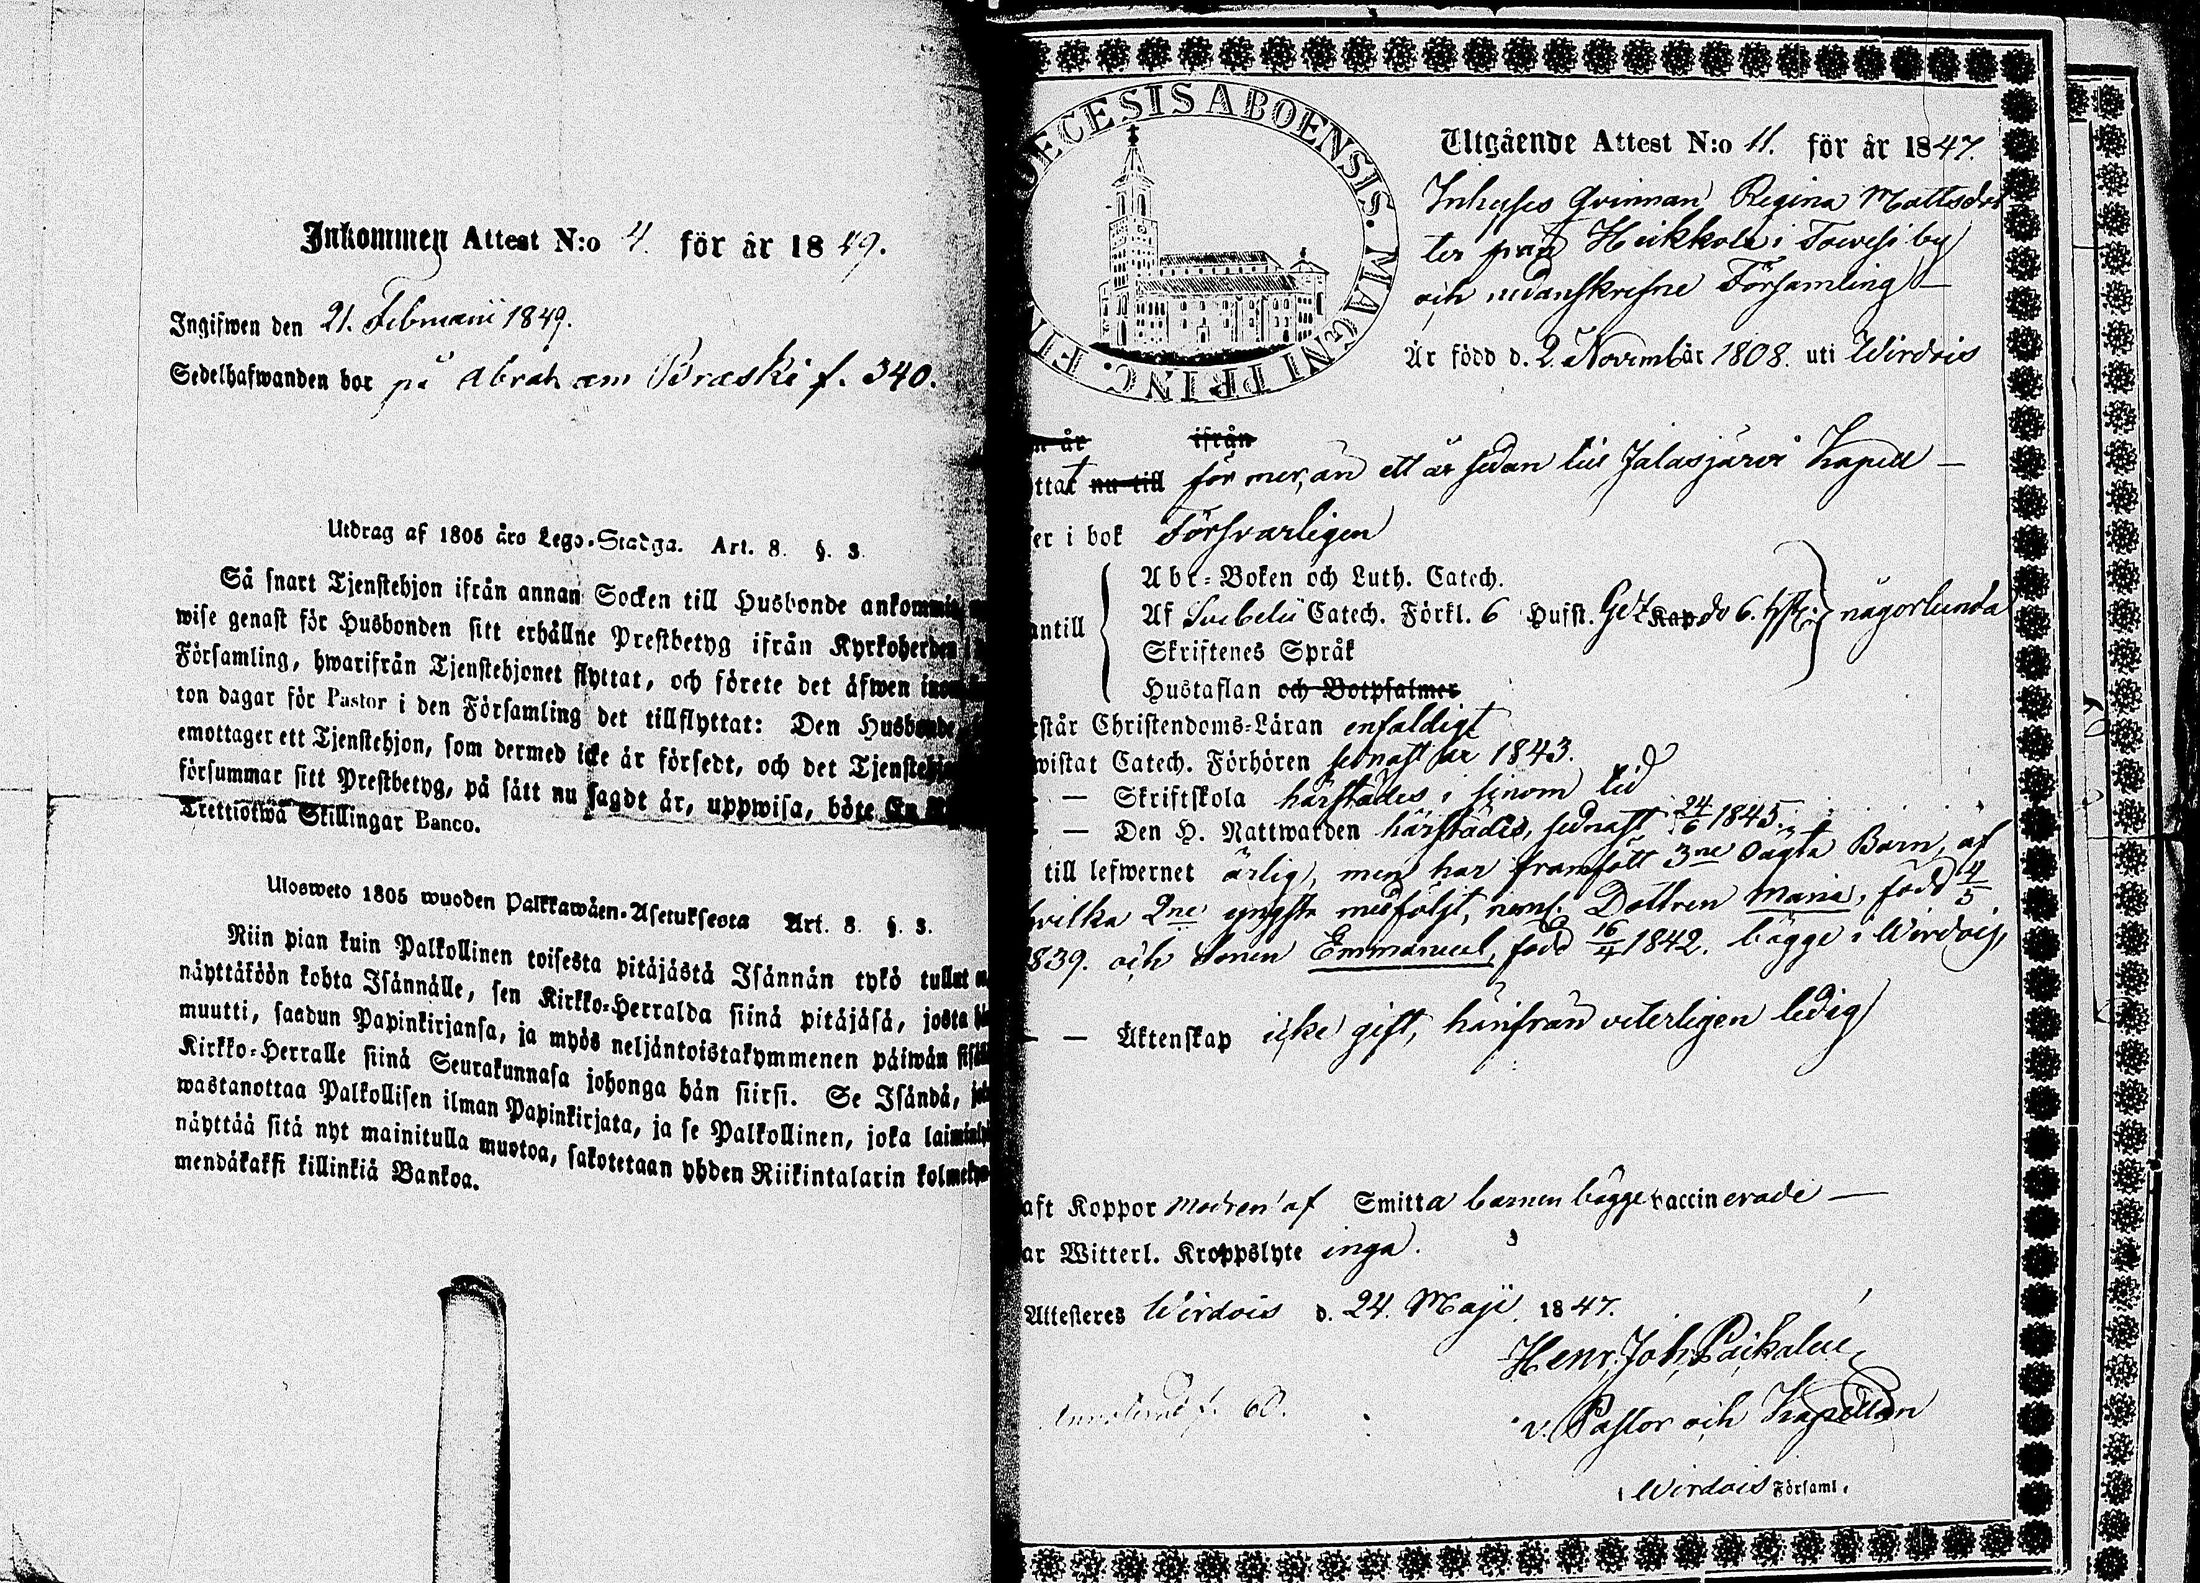 Inkommen Attest N:o 4. för år 1849.
Ingifwen den 21. Februarii 1849.
Sedelhafwanden bor på Abraham Präski f. 340.
Utdrag af 1805 års Lego-Stadga. Art. 8. §. 3.
Så snart Tjenstehjon ifrån annan Socken till Husbonde ankommit,
wise genast för Husbonden sitt erhållne Prestbetyg ifrån Kyrkoherden i
Församling, hwarifrån Tjenstehjonet flyttat, och förete det äfwen
ton dagar för Pastor i den Församling det tillflyttat: Den Husbonde
emottager ett Tjenstehjon, som dermed icke är försedt, och det Tjenstehjon
försummar sitt Prestbetyg, på sätt nu sagdt är, uppwisa, böte En
Trettiotwå Skillingar Banco.
Ulosweto 1805 wuoden Palkkawäen-Asetuksesta Art. 8. §. 3.
Niin pian kuin Palkollinen toisesta pitäjästä Isännän tykö tullut
näyttäköön kohta Isännälle, sen Kirkko-Herralda siinä pitäjäsä, josta
muutti, saadun Papinkirjansa, ja myös neljäntoistakymmenen päiwän
Kirkko-Herralle siinä Seurakunnasa johonga hän siirsi. Se Isändä,
wastanottaa Palkollisen ilman Papinkirjata, ja se Palkollinen, joka
näyttää sitä nyt mainitulla muotoa, sakotetaan yhden Riikintalarin
mendäkaksi killinkiä Bankoa.
DECESIS ABOENSIS. MAGNI PRINC. FIN
Utgående Attest N:o 11. för år 1847.
Inhyses Qvinnan Regina Mattsdot
ter från Heikkola i Toivesi by
och nedanskrefne Församling
Är född d. 2. Novembär 1808. uti Wirdois
är ifrån
ttat nu till för mer, än ett år sedan till Jalasjärvi Kapell
er i bok Försvarligen
Abc-Boken och Luth. Catech.
antill Af Svebelii Catech. Förkl. 6 Hufst. Kap do 6. någorlunda
Skriftenes Språk
Hustaflan och Botpsalmer
står Christendoms-Läran enfaldigt
wistat Catech. Förhören sednast år 1843.
— Skriftskola härstädes i sinom tid
— Den H. Nattwarden härstädes, sednast 24/6 1845.
till lefwernet ärlig, men har framfödt 3ne oägta Barn, af
hvilka 2ne yngsta medföljt, neml. Dottren Maria, född 4/5
1839. och Sonen Emmanuel, född 16/4 1842. bägge i Wirdois,
— Äktenskap icke gift, härifrån veterligen ledig
aft Koppor modren af Smitta barnen bägge vaccinerade —
ar Witterl. Kroppslyte inga.
Attesteres Wirdois d. 24. Maji 1847.
Henr. Joh. Päikalue
v. Pastor och Kapellan
f. 60.
i Wirdois Församl.